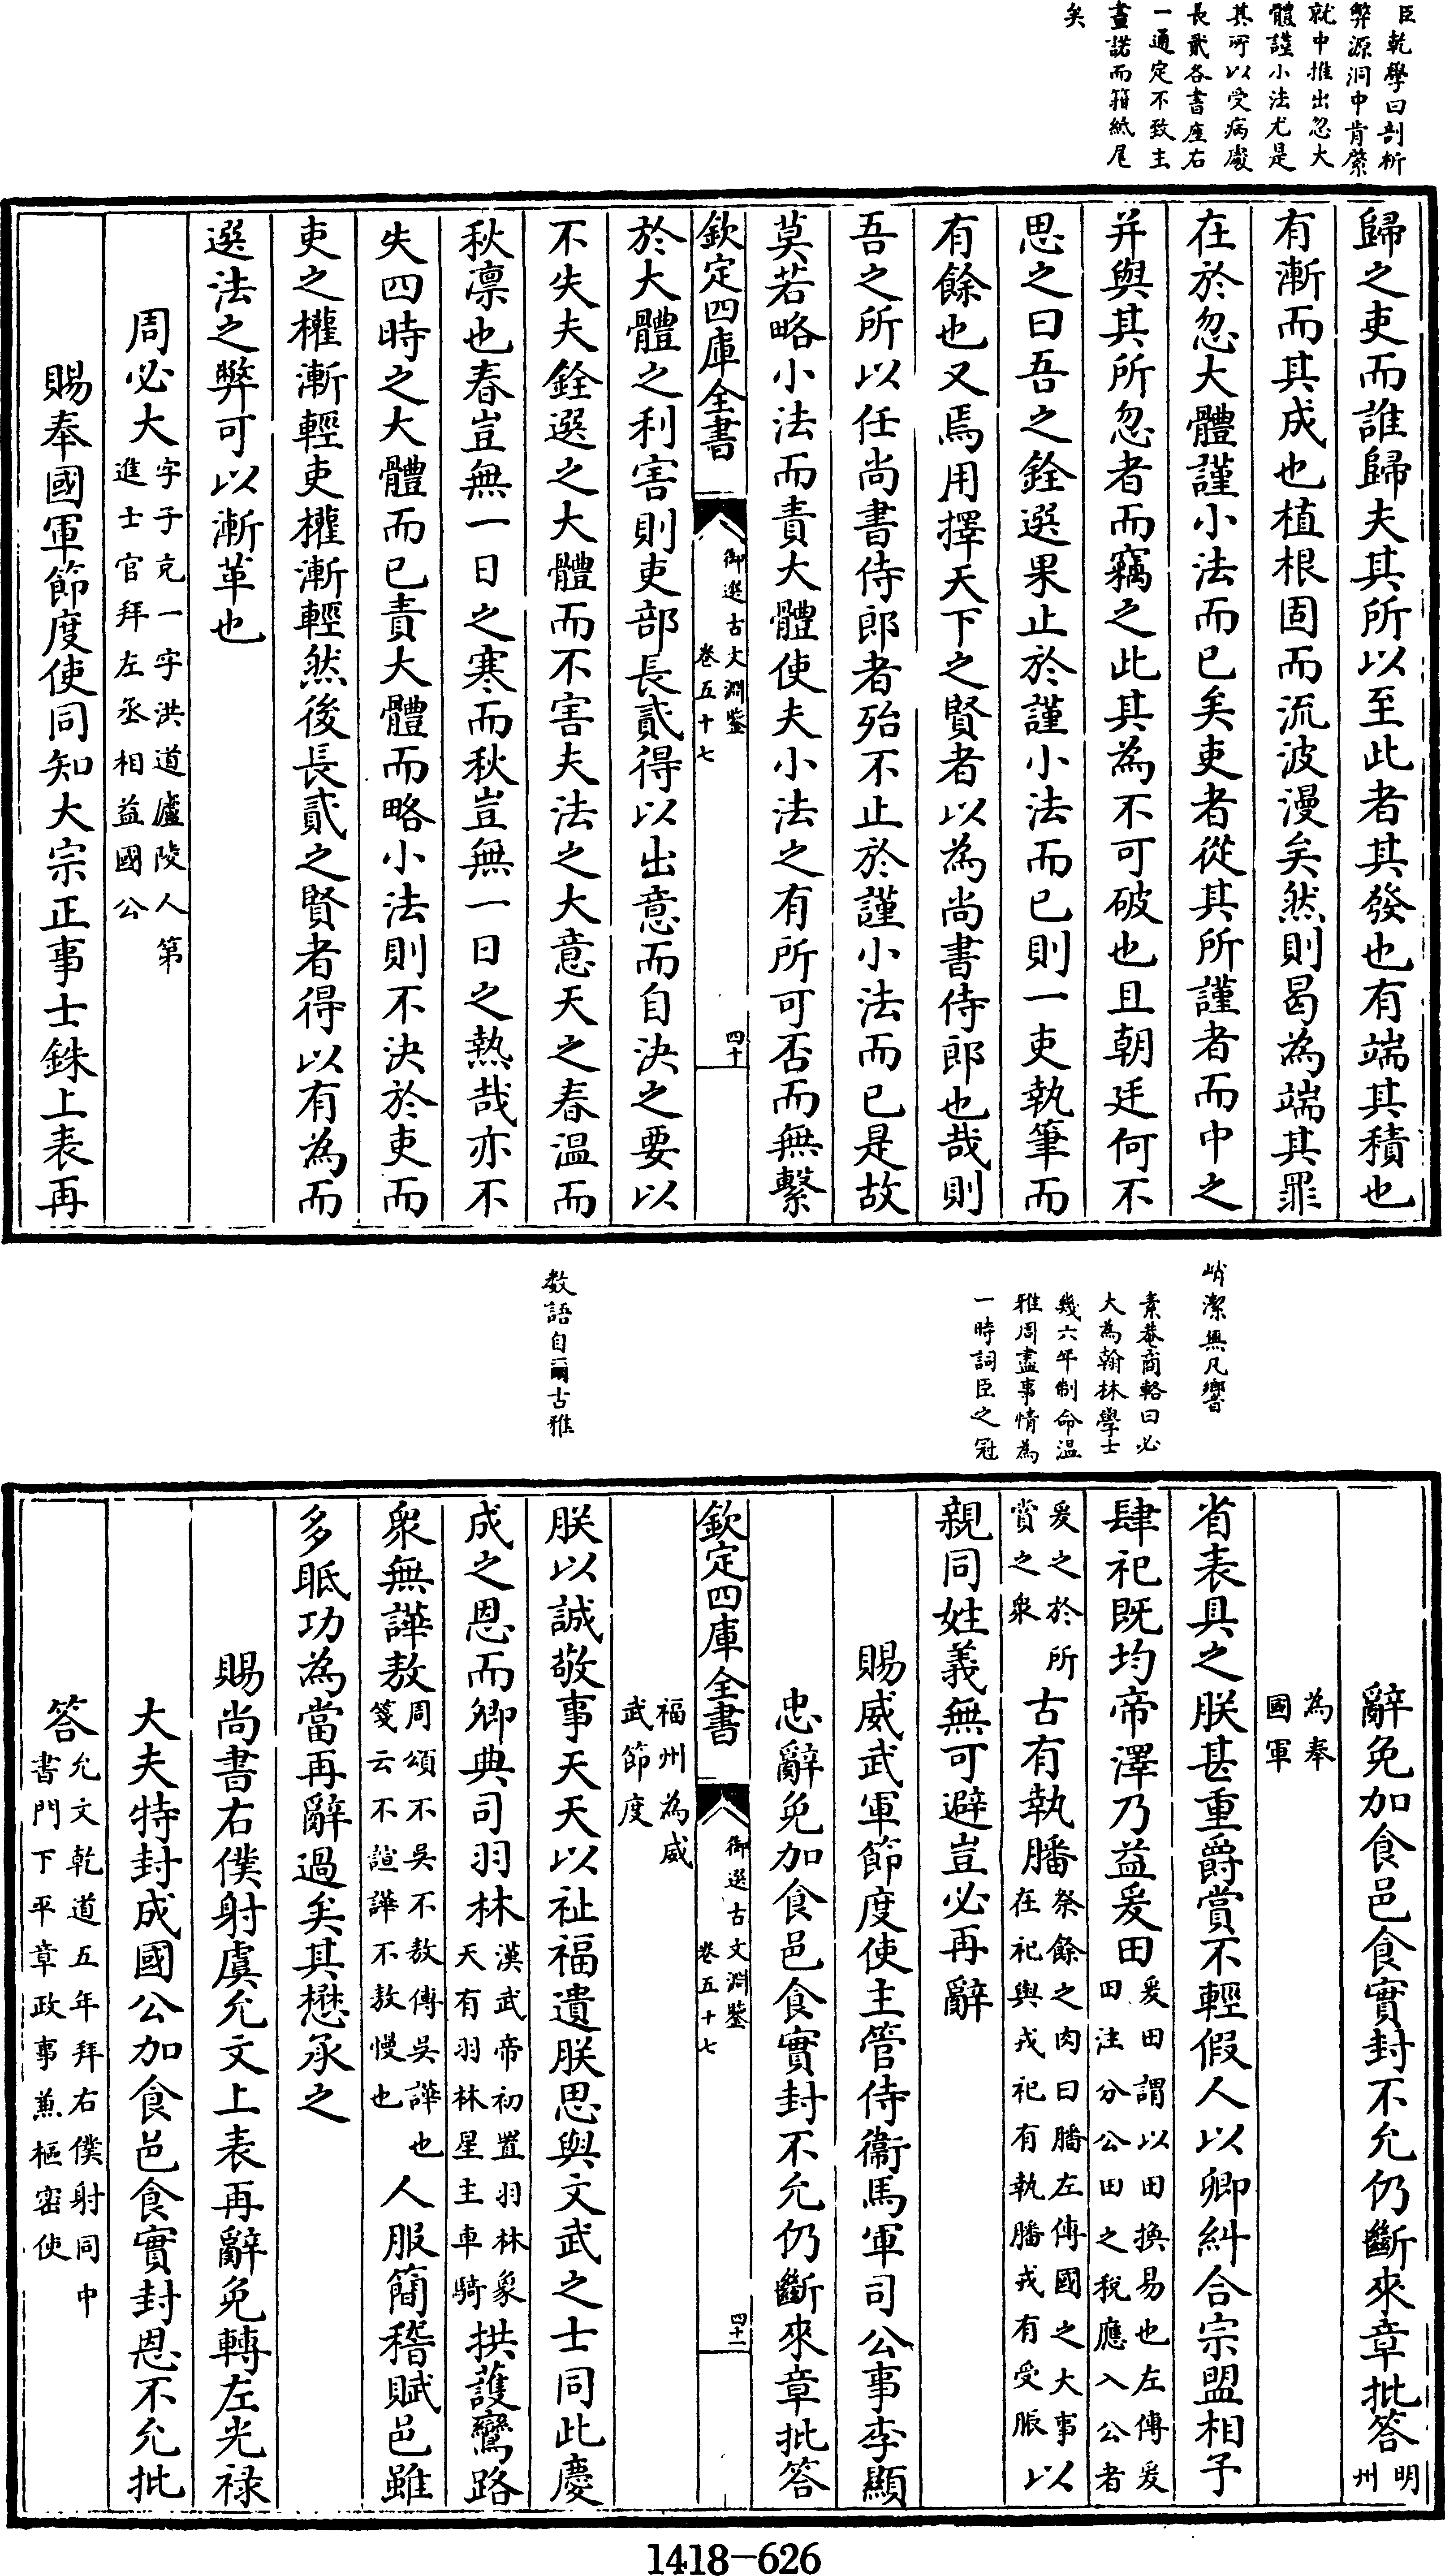 臣乾學曰剖析
弊源洞中肯綮
就中推出忽大
體謹小法尤是
其所以受病處
長貳各書座右
一通定不致主
畫諾而箝紙尾
矣
歸之吏而誰歸夫其所以至此者其發也有端其積也
有漸而其成也植根固而流波漫矣然則曷為端其罪
在於忽大體謹小法而已矣吏者從其所謹者而中之
并與其所忽者而竊之此其為不可破也且朝廷何不
思之曰吾之銓選果止於謹小法而已則一吏執筆而
有餘也又焉用擇天下之賢者以為尚書侍郎也哉則
吾之所以任尚書侍郎者殆不止於謹小法而已是故
莫若略小法而責大體使夫小法之有所可否而無繫
欽定四庫全書
御選古文淵鑒
卷五十七
四十
於大體之利害則吏部長貳得以出意而自決之要以
不失夫銓選之大體而不害夫法之大意天之春温而
秋凛也春豈無一日之寒而秋豈無一日之熱哉亦不
失四時之大體而已責大體而略小法則不決於吏而
吏之權漸輕吏權漸輕然後長貳之賢者得以有為而
選法之弊可以漸革也
周必大字子充一字洪道廬陵人第
進士官拜左丞相益國公
賜奉國軍節度使同知大宗正事士銖上表再
峭潔無凡響
素菴商輅曰必
大為翰林學士
幾六年制命温
雅周盡事情為
一時詞臣之冠
數語自爾古雅
辭免加食邑食實封不允仍斷來章批答明
州
為奉
國軍
省表具之朕甚重爵賞不輕假人以卿糾合宗盟相予
肆祀既均帝澤乃益爰田爰田謂以田換易也左傳爰
田注分公田之稅應入公者
爰之於所
賞之衆
古有執膰祭餘之肉曰膰左傳國之大事
在祀與戎祀有執膰戎有受脤
以
親同姓義無可避豈必再辭
賜威武軍節度使主管侍衞馬軍司公事李顯
忠辭免加食邑食實封不允仍斷來章批答
福州為威
武節度
欽定四庫全書
御選古文淵鑒
卷五十七
四十一
朕以誠敬事天天以祉福遺朕思與文武之士同此慶
成之恩而卿典司羽林漢武帝初置羽林象
天有羽林星主車騎
拱護鸞路
衆無譁敖周頌不吳不敖傳吳譁也
箋云不諠譁不敖慢也
人服簡稽賦邑雖
多眂功為當再辭過矣其懋承之
賜尚書右僕射虞允文上表再辭免轉左光禄
大夫特封成國公加食邑食實封恩不允批
答允文乾道五年拜右僕射同中
書門下平章政事兼樞密使
1418—626